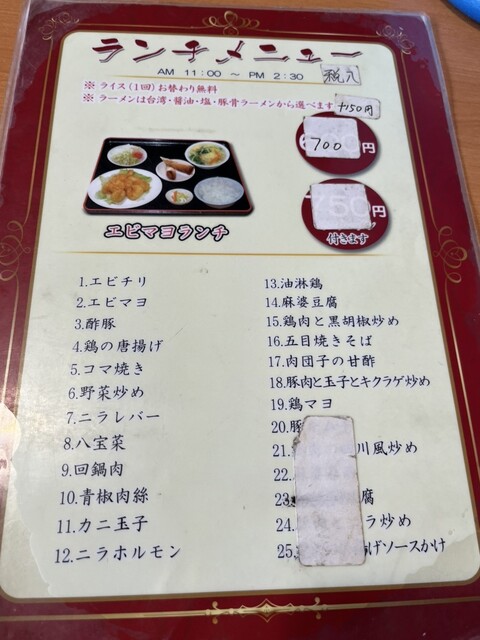 ランチメニュー
AM 11:00 ～ PM 2:30 税入
※ ライス(1回)お替わり無料
※ ラーメンは台湾・醤油・塩・豚骨ラーメンから選べます +150円
700円
750円
付きます
エビマヨランチ
1.エビチリ
2.エビマヨ
3.酢豚
4.鶏の唐揚げ
5.コマ焼き
6.野菜炒め
7.ニラレバー
8.八宝菜
9.回鍋肉
10.青椒肉絲
11.カニ玉子
12.ニラホルモン
13.油淋鶏
14.麻婆豆腐
15.鶏肉と黒胡椒炒め
16.五目焼きそば
17.肉団子の甘酢
18.豚肉と玉子とキクラゲ炒め
19.鶏マヨ
20.豚
21. 川風炒め
22.
23. 腐
24. ラ炒め
25. げソースかけ